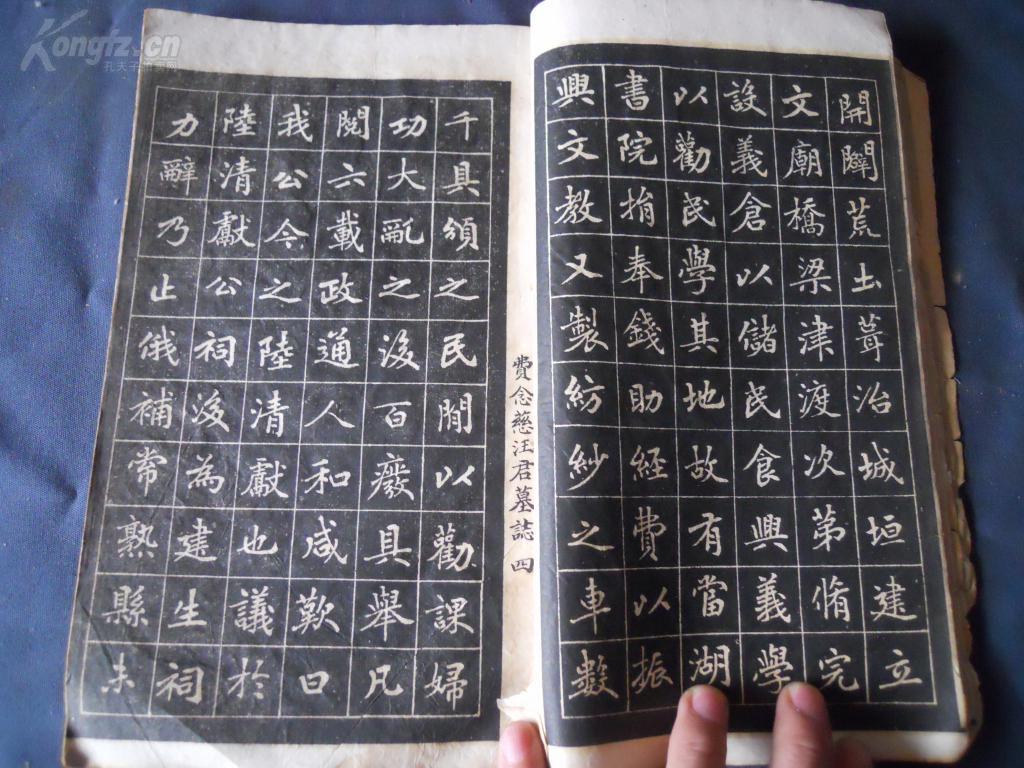 開闢荒土葺治城垣建立
文廟橋梁津渡次第脩完
設義倉以儲民食興義學
以勸民學其地故有當湖
書院捐奉錢助經費以振
興文教又製紡紗之車數
千具頒之民閒以勸課婦
功大亂之後百廢具舉凡
閱六載政通人和咸歎曰
我公今之陸清獻也議於
陸清獻公祠後為建生祠
力辭乃止俄補常熟縣未
費念慈汪君墓誌 四
Kongfz.cn
孔夫子舊書網